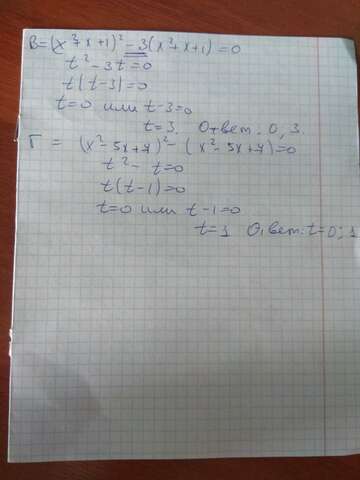 В=(x²+x+1)²-3(x²+x+1)=0
t²-3t=0
t(t-3)=0
t=0 или t-3=0
t=3. Ответ: 0, 3.
Г= (x²-5x+7)²-(x²-5x+7)=0
t²-t=0
t(t-1)=0
t=0 или t-1=0
t=1 Ответ: t=0; 1